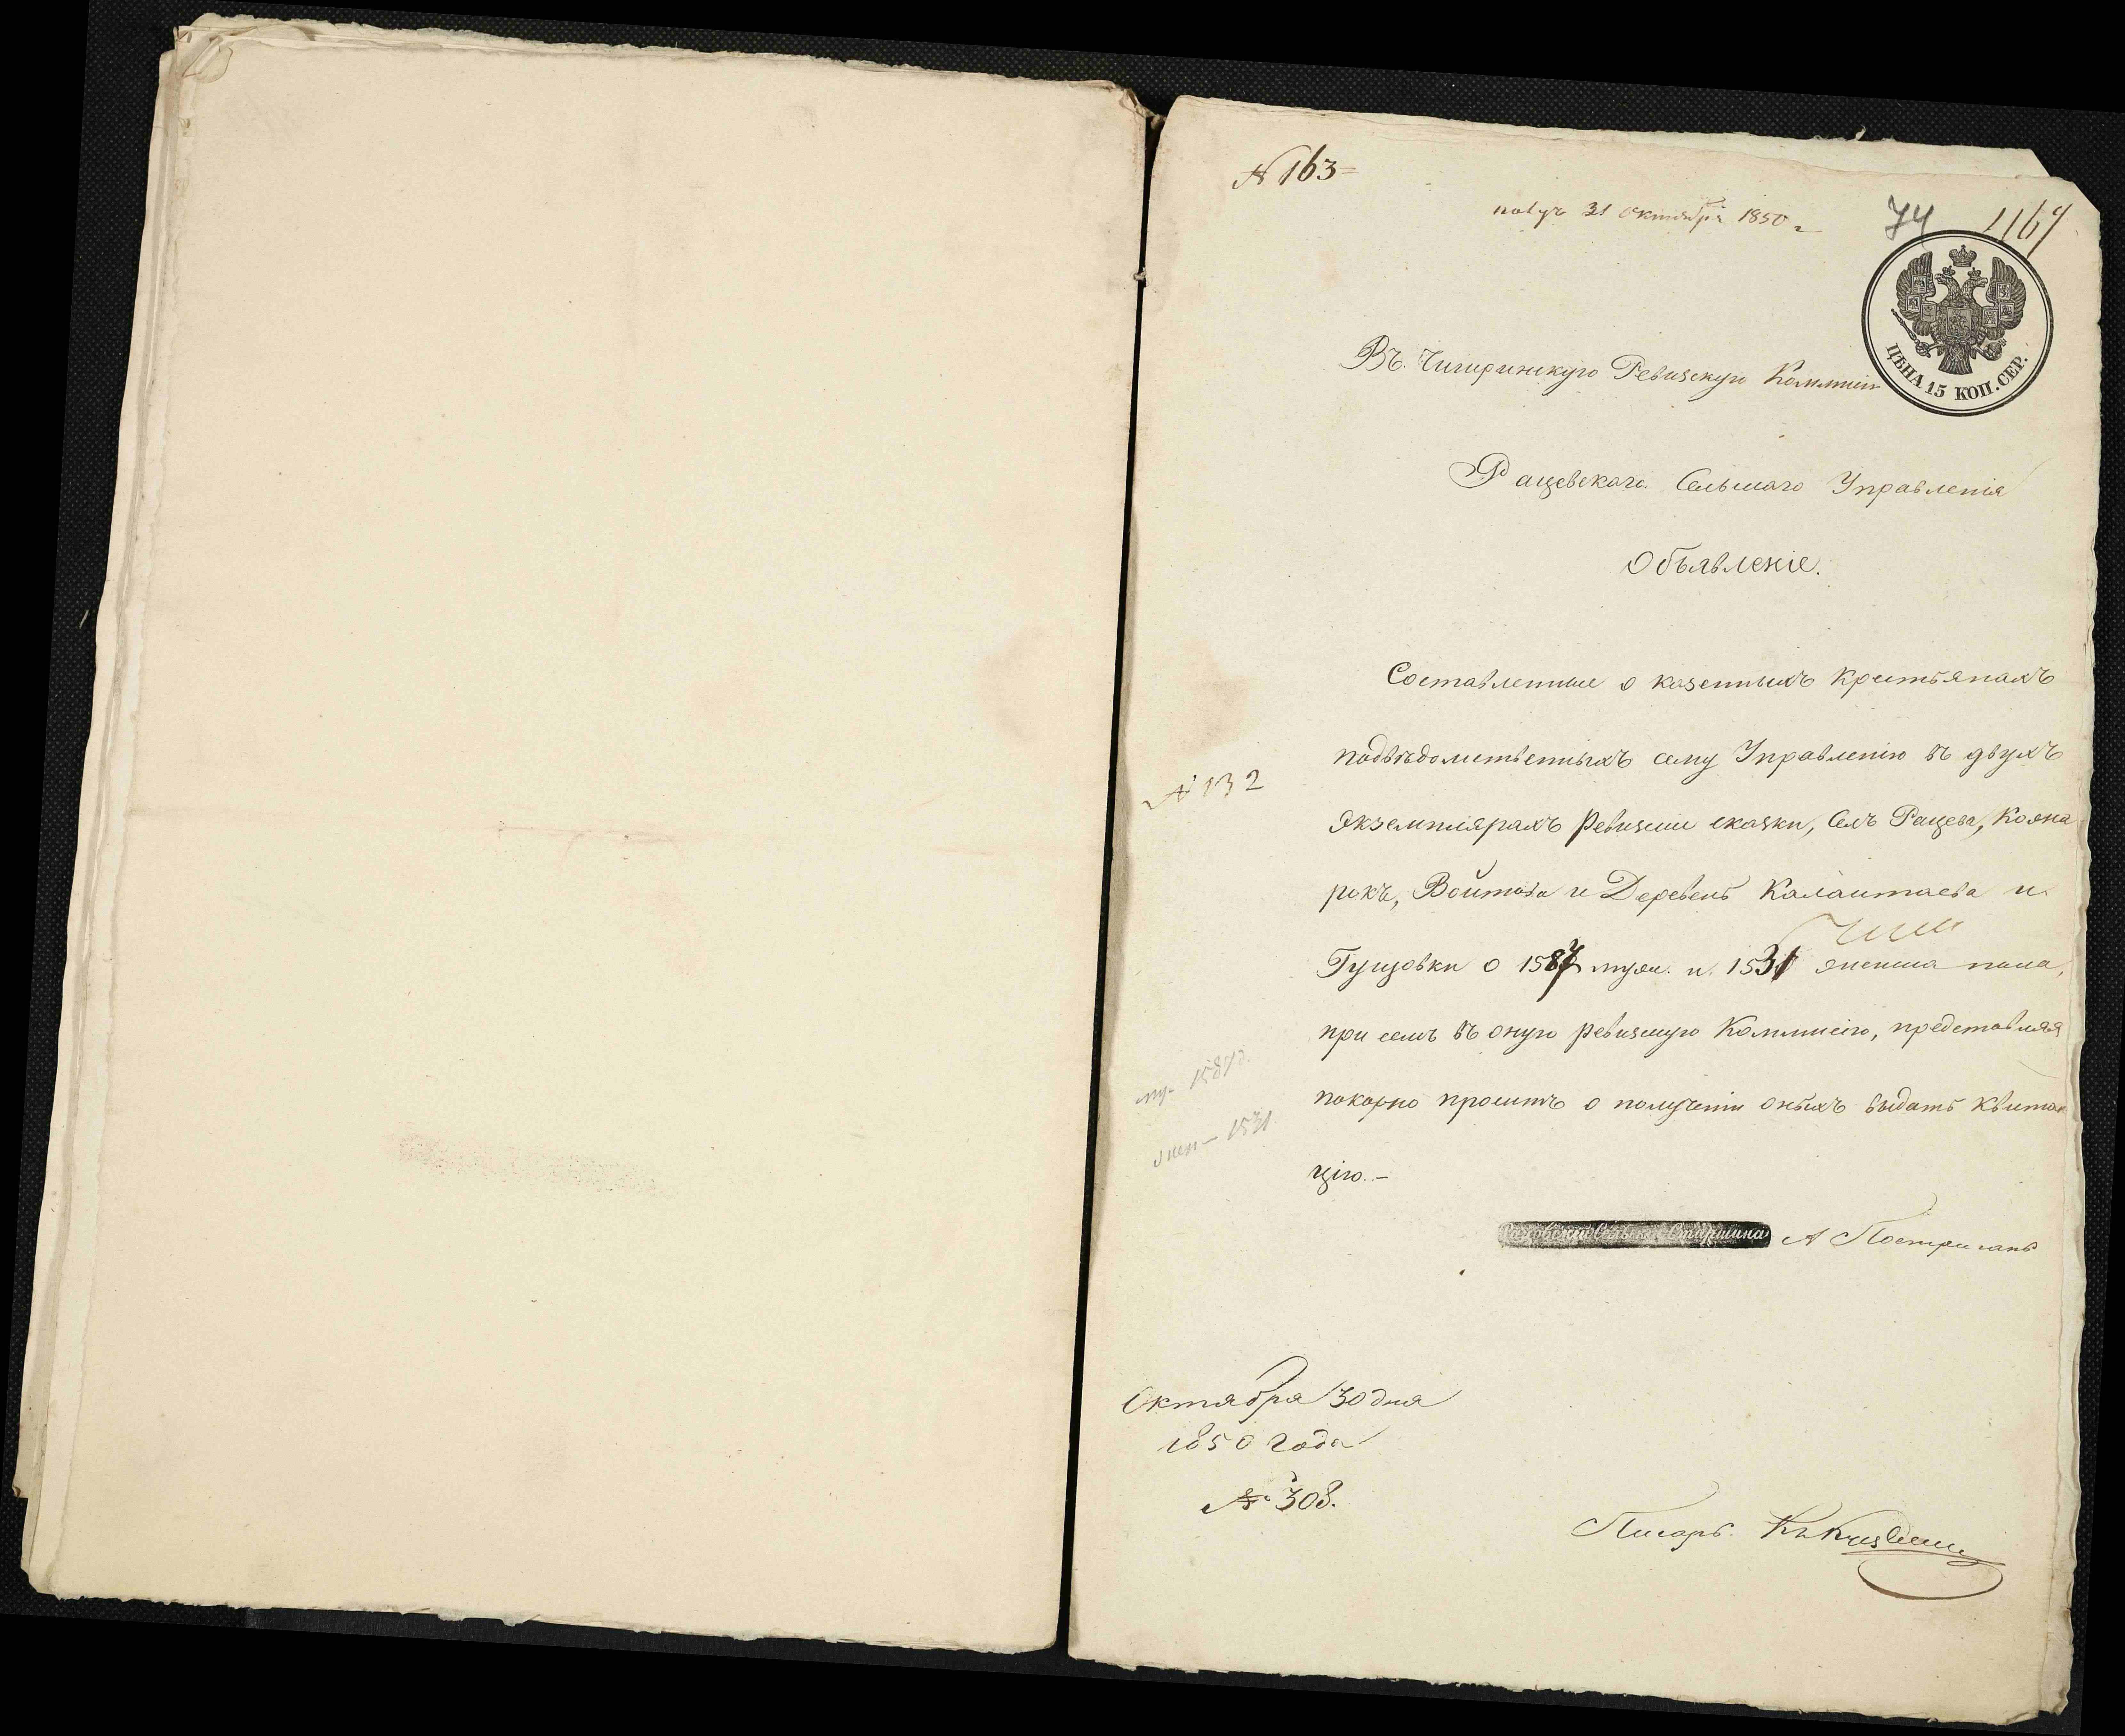 № 163
получ 31 октября 1850 г
74
1169
ЦѢНА 15 КОП. СЕР.
Въ Чигиринскую Ревизскую Коммисію
Рацевскаго Сельскаго Управленія
Объявленіе.
Составленные о казенныхъ крестьянахъ
подвѣдомственныхъ сему Управленію въ двухъ
№ 132
экземплярахъ ревизскіе сказки, Селъ Рацева, Кожа
рокъ, Войтова и Деревень Калантаева и
Гущовки о 1587 муж. и 1531 женска пола,
при семъ въ оную ревизскую Коммисію, представляя
му- 1587
покорно проситъ о полученіи оныхъ выдать квитан
жен- 1531.
цію.-
Рацевскій Сельскій Старшина А Постриганъ
Октября 30 дня
1850 года
№ 308.
Писарь